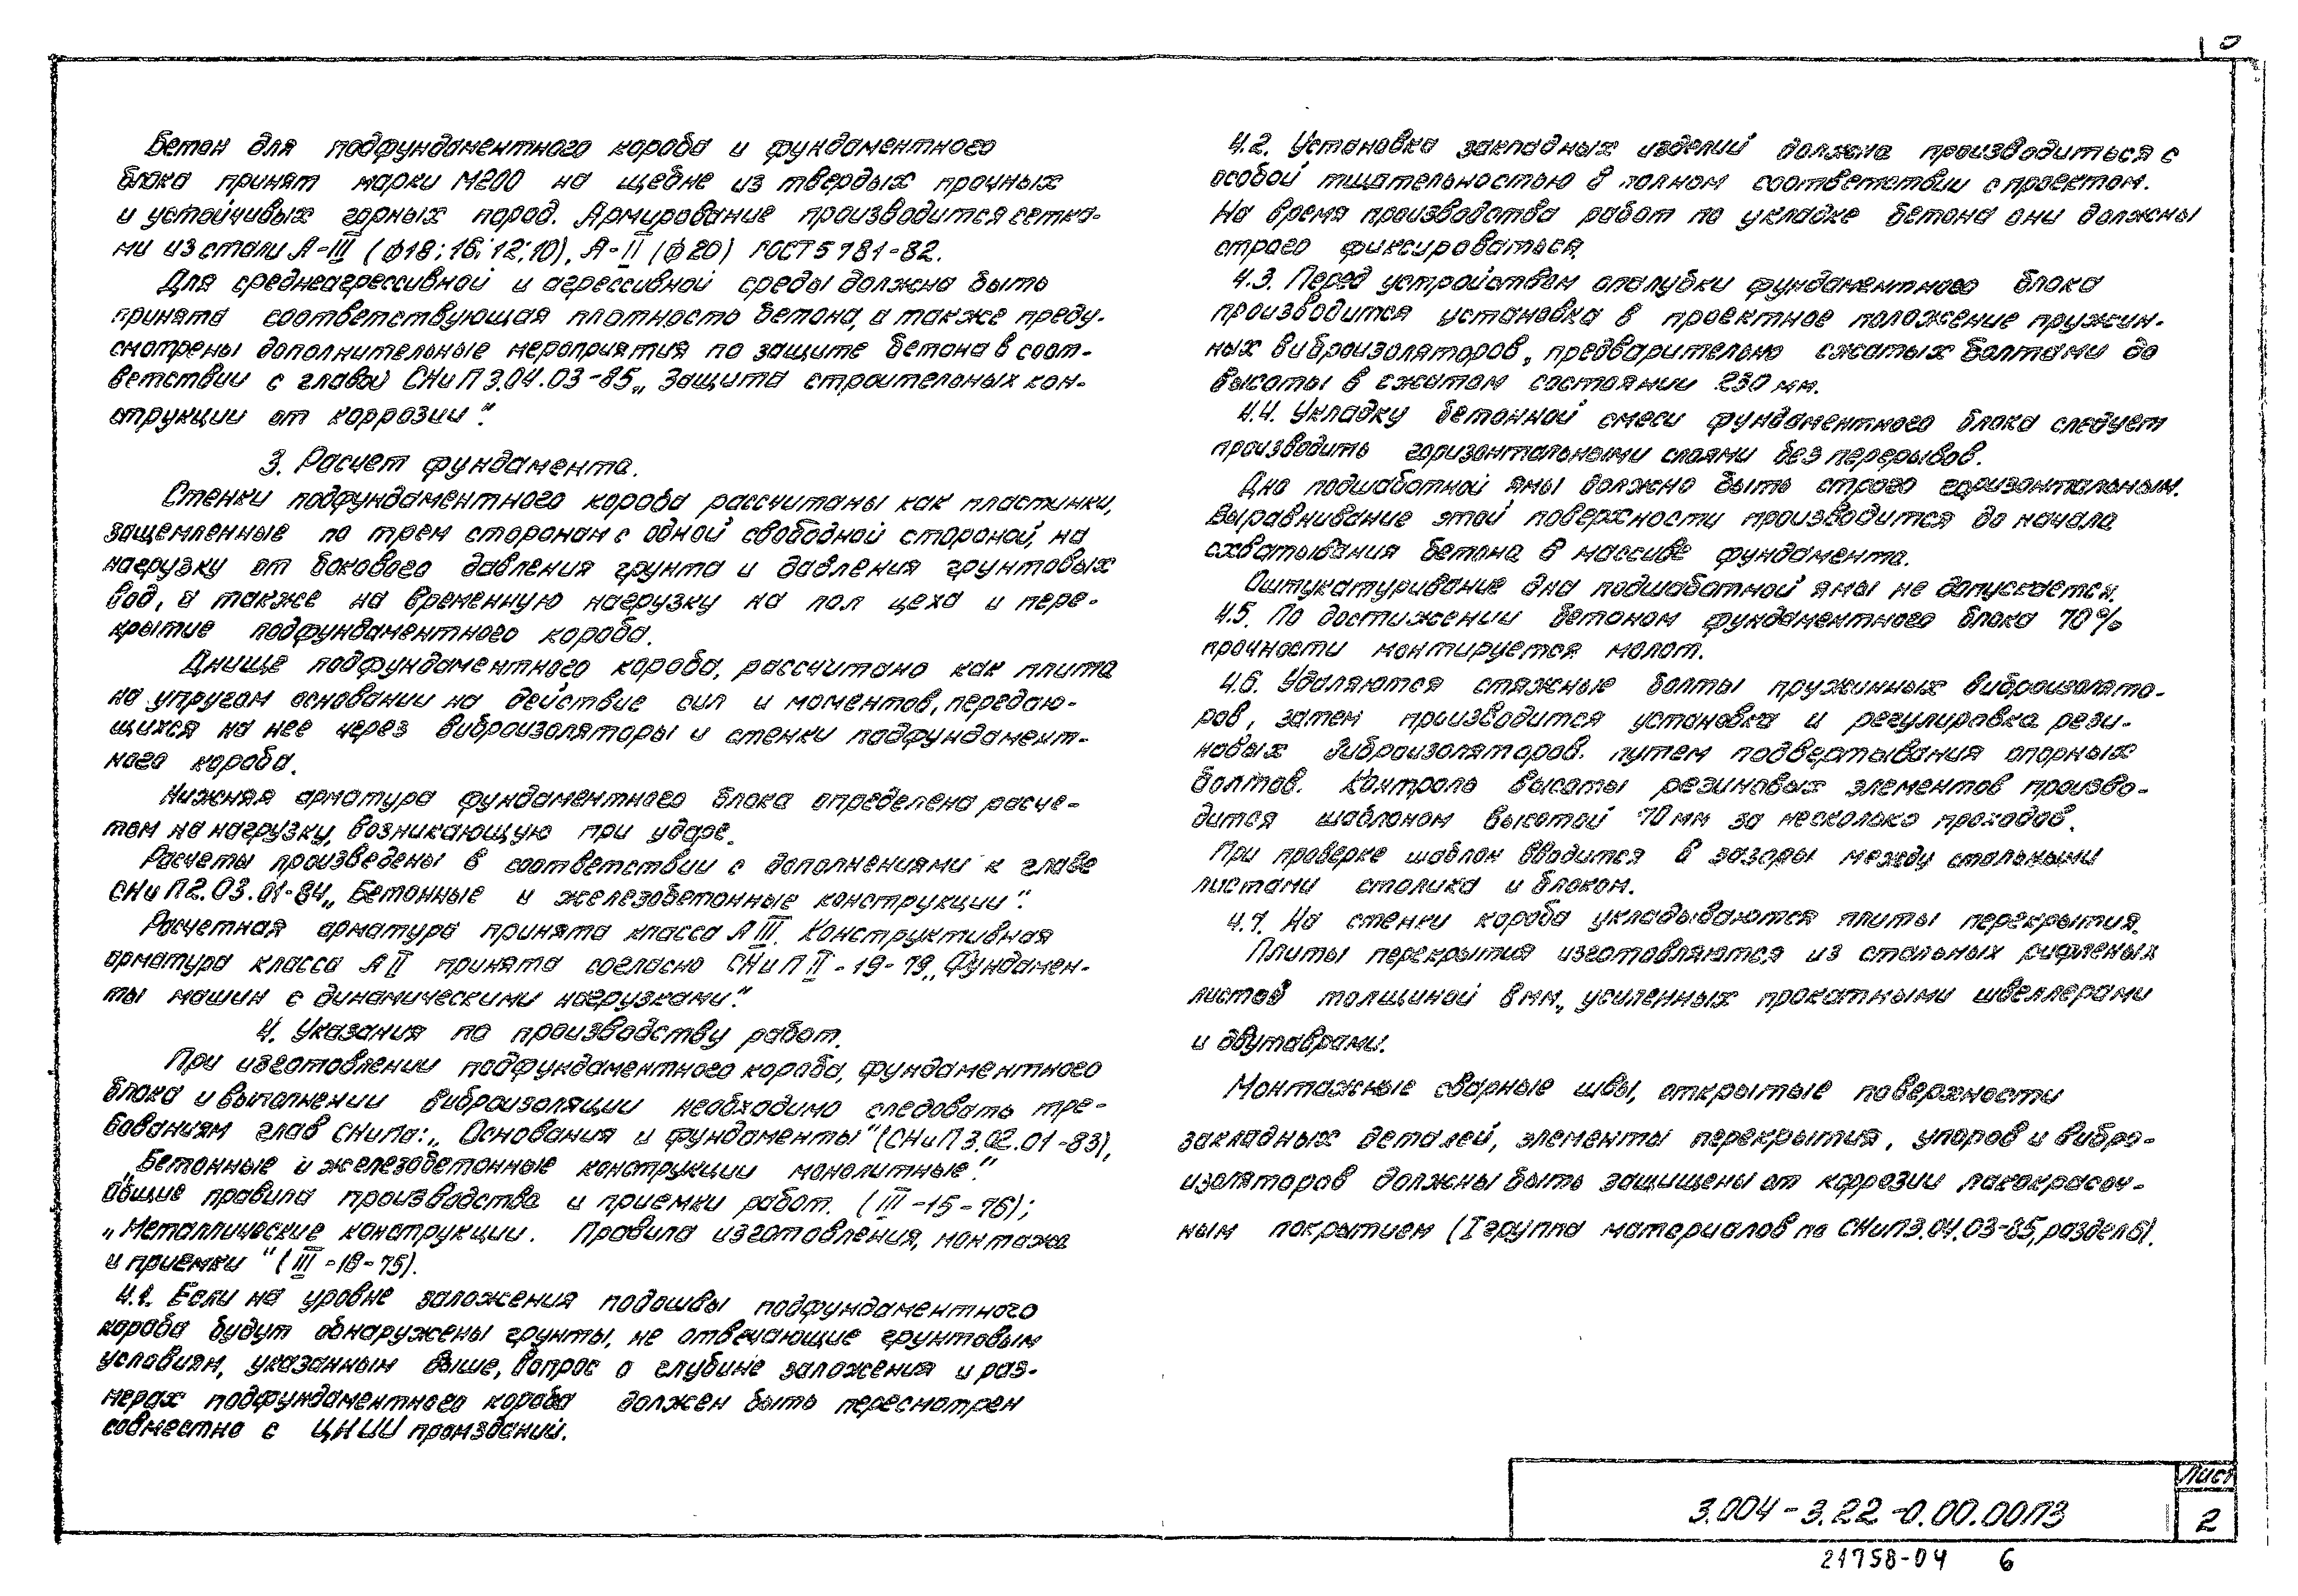 Бетон для подфундаментного короба и фундаментного
блока принят марки М200 на щебне из твердых прочных
и устойчивых горных пород. Армирование производится сетка-
ми из стали А-III (ф18; 16; 12; 10), А-II (ф20) ГОСТ 5781-82.
Для среднеагрессивной и агрессивной среды должна быть
принята соответствующая плотность бетона, а также преду-
смотрены дополнительные мероприятия по защите бетона в соот-
ветствии с главой СНиП 3.04.03-85 „Защита строительных кон-
струкции от коррозии".
3. Расчет фундамента.
Стенки подфундаментного короба рассчитаны как пластинки,
защемленные по трем сторонам с одной свободной стороной, на
нагрузку от бокового давления грунта и давления грунтовых
вод, а также на временную нагрузку на пол цеха и пере-
крытие подфундаментного короба.
Днище подфундаментного короба, рассчитано как плита
на упругом основании на действие сил и моментов, передаю-
щихся на нее через виброизоляторы и стенки подфундамент-
ного короба.
Нижняя арматура фундаментного блока определена расче-
том на нагрузку, возникающую при ударе.
Расчеты произведены в соответствии с дополнениями к главе
СНиП 2.03.01-84 „Бетонные и железобетонные конструкции".
Расчетная арматура принята класса А III. Конструктивная
арматура класса А II принята согласно СНиП II-19-79 „Фундамен-
ты машин с динамическими нагрузками".
4. Указания по производству работ.
При изготовлении подфундаментного короба, фундаментного
блока и выполнении виброизоляции необходимо следовать тре-
бованиям глав СНиПа: „Основания и фундаменты" (СНиП 3.02.01-83),
„Бетонные и железобетонные конструкции монолитные."
Общие правила производства и приемки работ. (III-15-76);
„Металлические конструкции. Правила изготовления, монтажа
и приемки" (III-18-75).
4.1. Если на уровне заложения подошвы подфундаментного
короба будут обнаружены грунты, не отвечающие грунтовым
условиям, указанным выше, вопрос о глубине заложения и раз-
мерах подфундаментного короба должен быть пересмотрен
совместно с ЦНИИпромзданий.
4.2. Установка закладных изделий должна производиться с
особой тщательностью в полном соответствии с проектом.
На время производства работ по укладке бетона они должны
строго фиксироваться.
4.3. Перед устройством опалубки фундаментного блока
производится установка в проектное положение пружин-
ных виброизоляторов, предварительно сжатых болтами до
высоты в сжатом состоянии 230 мм.
4.4. Укладку бетонной смеси фундаментного блока следует
производить горизонтальными слоями без перерывов.
Дно подшаботной ямы должно быть строго горизонтальным.
Выравнивание этой поверхности производится до начала
схватывания бетона в массиве фундамента.
Оштукатуривание дна подшаботной ямы не допускается.
4.5. По достижении бетоном фундаментного блока 70%
прочности монтируется молот.
4.6. Удаляются стяжные болты пружинных виброизолято-
ров, затем производится установка и регулировка рези-
новых виброизоляторов. путем подвертывания опорных
болтов. Контроль высоты резиновых элементов произво-
дится шаблоном высотой 70 мм за несколько проходов.
При проверке шаблон вводится в зазоры между стальными
листами столика и блоком.
4.7. На стенки короба укладываются плиты перекрытия.
Плиты перекрытия изготавляются из стальных рифленых
листов толщиной 8 мм., усиленных прокатными швеллерами
и двутаврами.
Монтажные сварные швы, открытые поверхности
закладных деталей, элементы перекрытия, упоров и вибро-
изоляторов должны быть защищены от коррозии лакокрасоч-
ным покрытием (I группа материалов по СНиП 3.04.03-85, раздел 6).
3.004-3.22-0.00.00ПЗ
Лист
2
21758-04 6